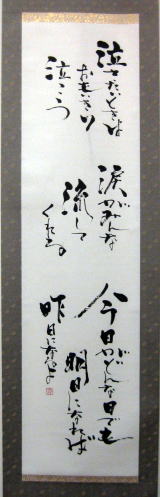 泣きたいときは
おもいきり
泣こう
涙がみんな
流して
くれる。
今日がどんな日でも
明日になれば
昨日になるよ